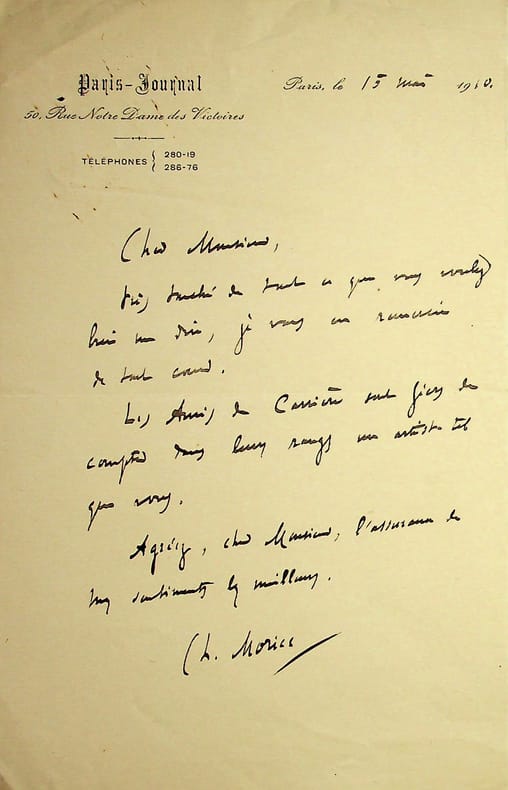 Paris-Journal
50, Rue Notre Dame des Victoires
TÉLÉPHONES { 280-19
286-76
Paris, le 15 mai 1910.
Cher Monsieur,
très touché de tout ce que vous voulez
bien me dire, je vous en remercie
de tout cœur.
Les Amis de Carrière sont fiers de
compter dans leurs rangs un artiste tel
que vous.
Agréez, cher Monsieur, l'assurance de
mes sentiments les meilleurs.
Ch. Morice